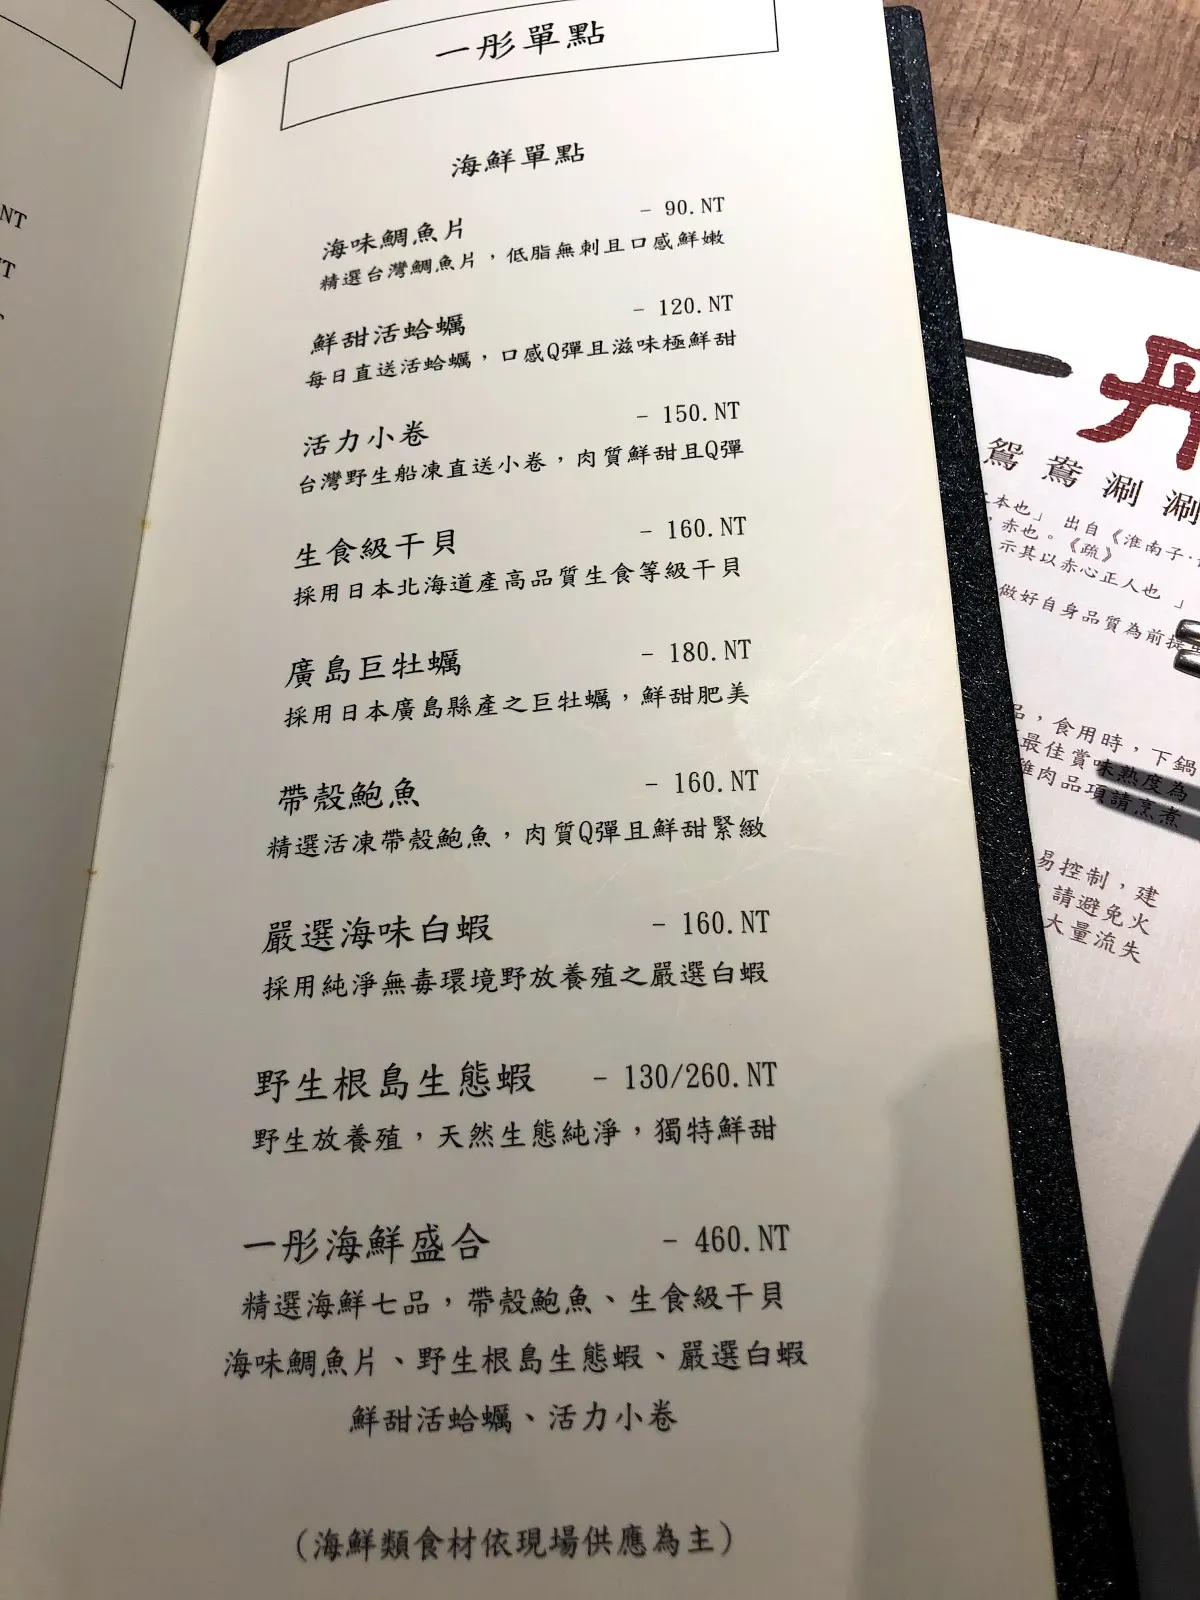 NT
一彤單點
海鮮單點
海味鯛魚片 - 90.NT
精選台灣鯛魚片，低脂無刺且口感鮮嫩
鮮甜活蛤蠣 - 120.NT
每日直送活蛤蠣，口感Q彈且滋味極鮮甜
活力小卷 - 150.NT
台灣野生船凍直送小卷，肉質鮮甜且Q彈
生食級干貝 - 160.NT
採用日本北海道產高品質生食等級干貝
廣島巨牡蠣 - 180.NT
採用日本廣島縣產之巨牡蠣，鮮甜肥美
帶殼鮑魚 - 160.NT
精選活凍帶殼鮑魚，肉質Q彈且鮮甜緊緻
嚴選海味白蝦 - 160.NT
採用純淨無毒環境野放養殖之嚴選白蝦
野生根島生態蝦 - 130/260.NT
野生放養殖，天然生態純淨，獨特鮮甜
一彤海鮮盛合 - 460.NT
精選海鮮七品，帶殼鮑魚、生食級干貝
海味鯛魚片、野生根島生態蝦、嚴選白蝦
鮮甜活蛤蠣、活力小卷
(海鮮類食材依現場供應為主)
一
鴛鴦涮涮
本也」出自《淮南子·
，赤也。《疏》
示其以赤心正人也」
做好自身品質為前提
品，食用時，下鍋
最佳賞味熟度為
雞肉品項請烹煮
易控制，建
，請避免火
大量流失